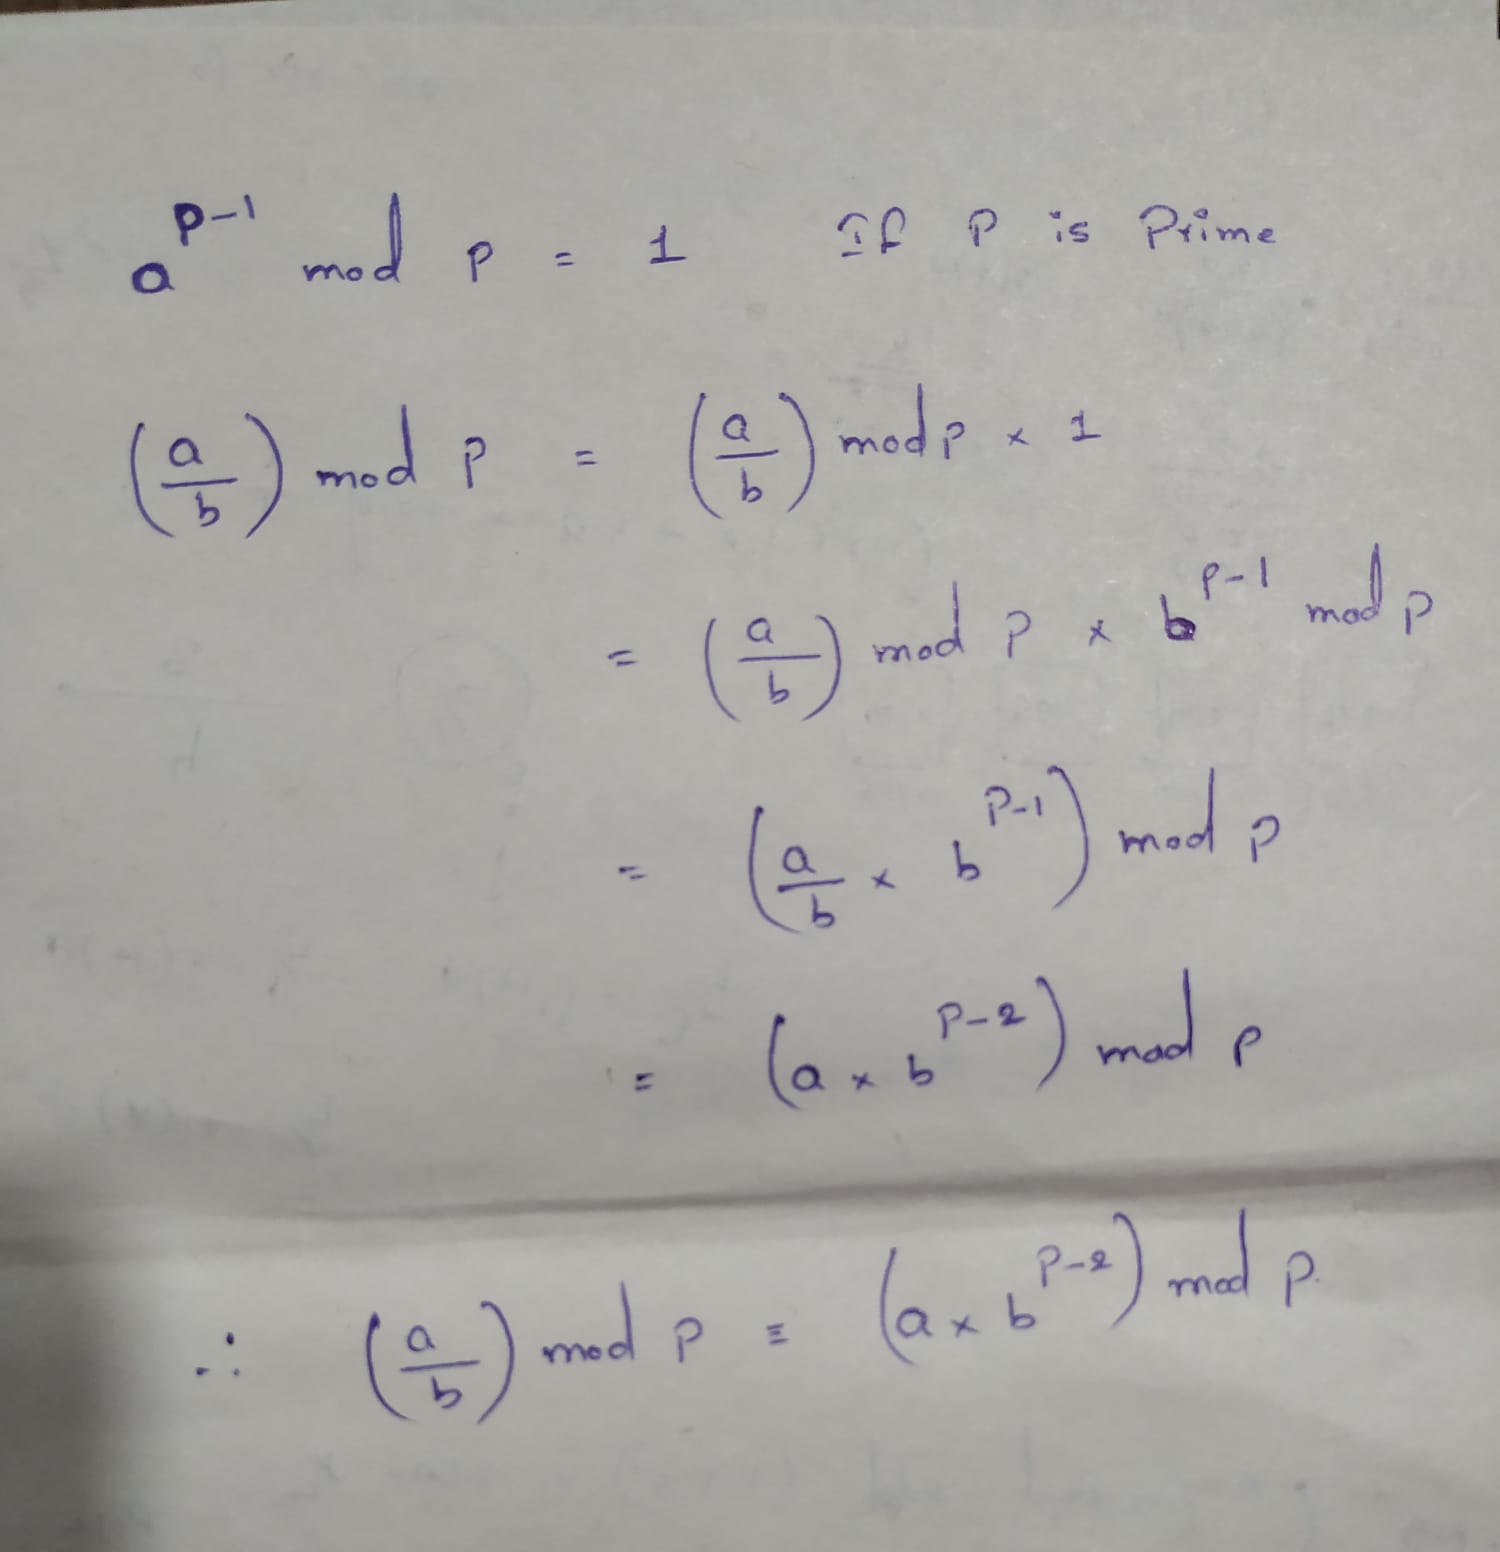 a^(p-1) mod p = 1 If P is Prime
(a/b) mod p = (a/b) mod p × 1
= (a/b) mod p × b^(p-1) mod p
= (a/b × b^(p-1)) mod p
= (a × b^(p-2)) mod p
∴ (a/b) mod p = (a × b^(p-2)) mod p.